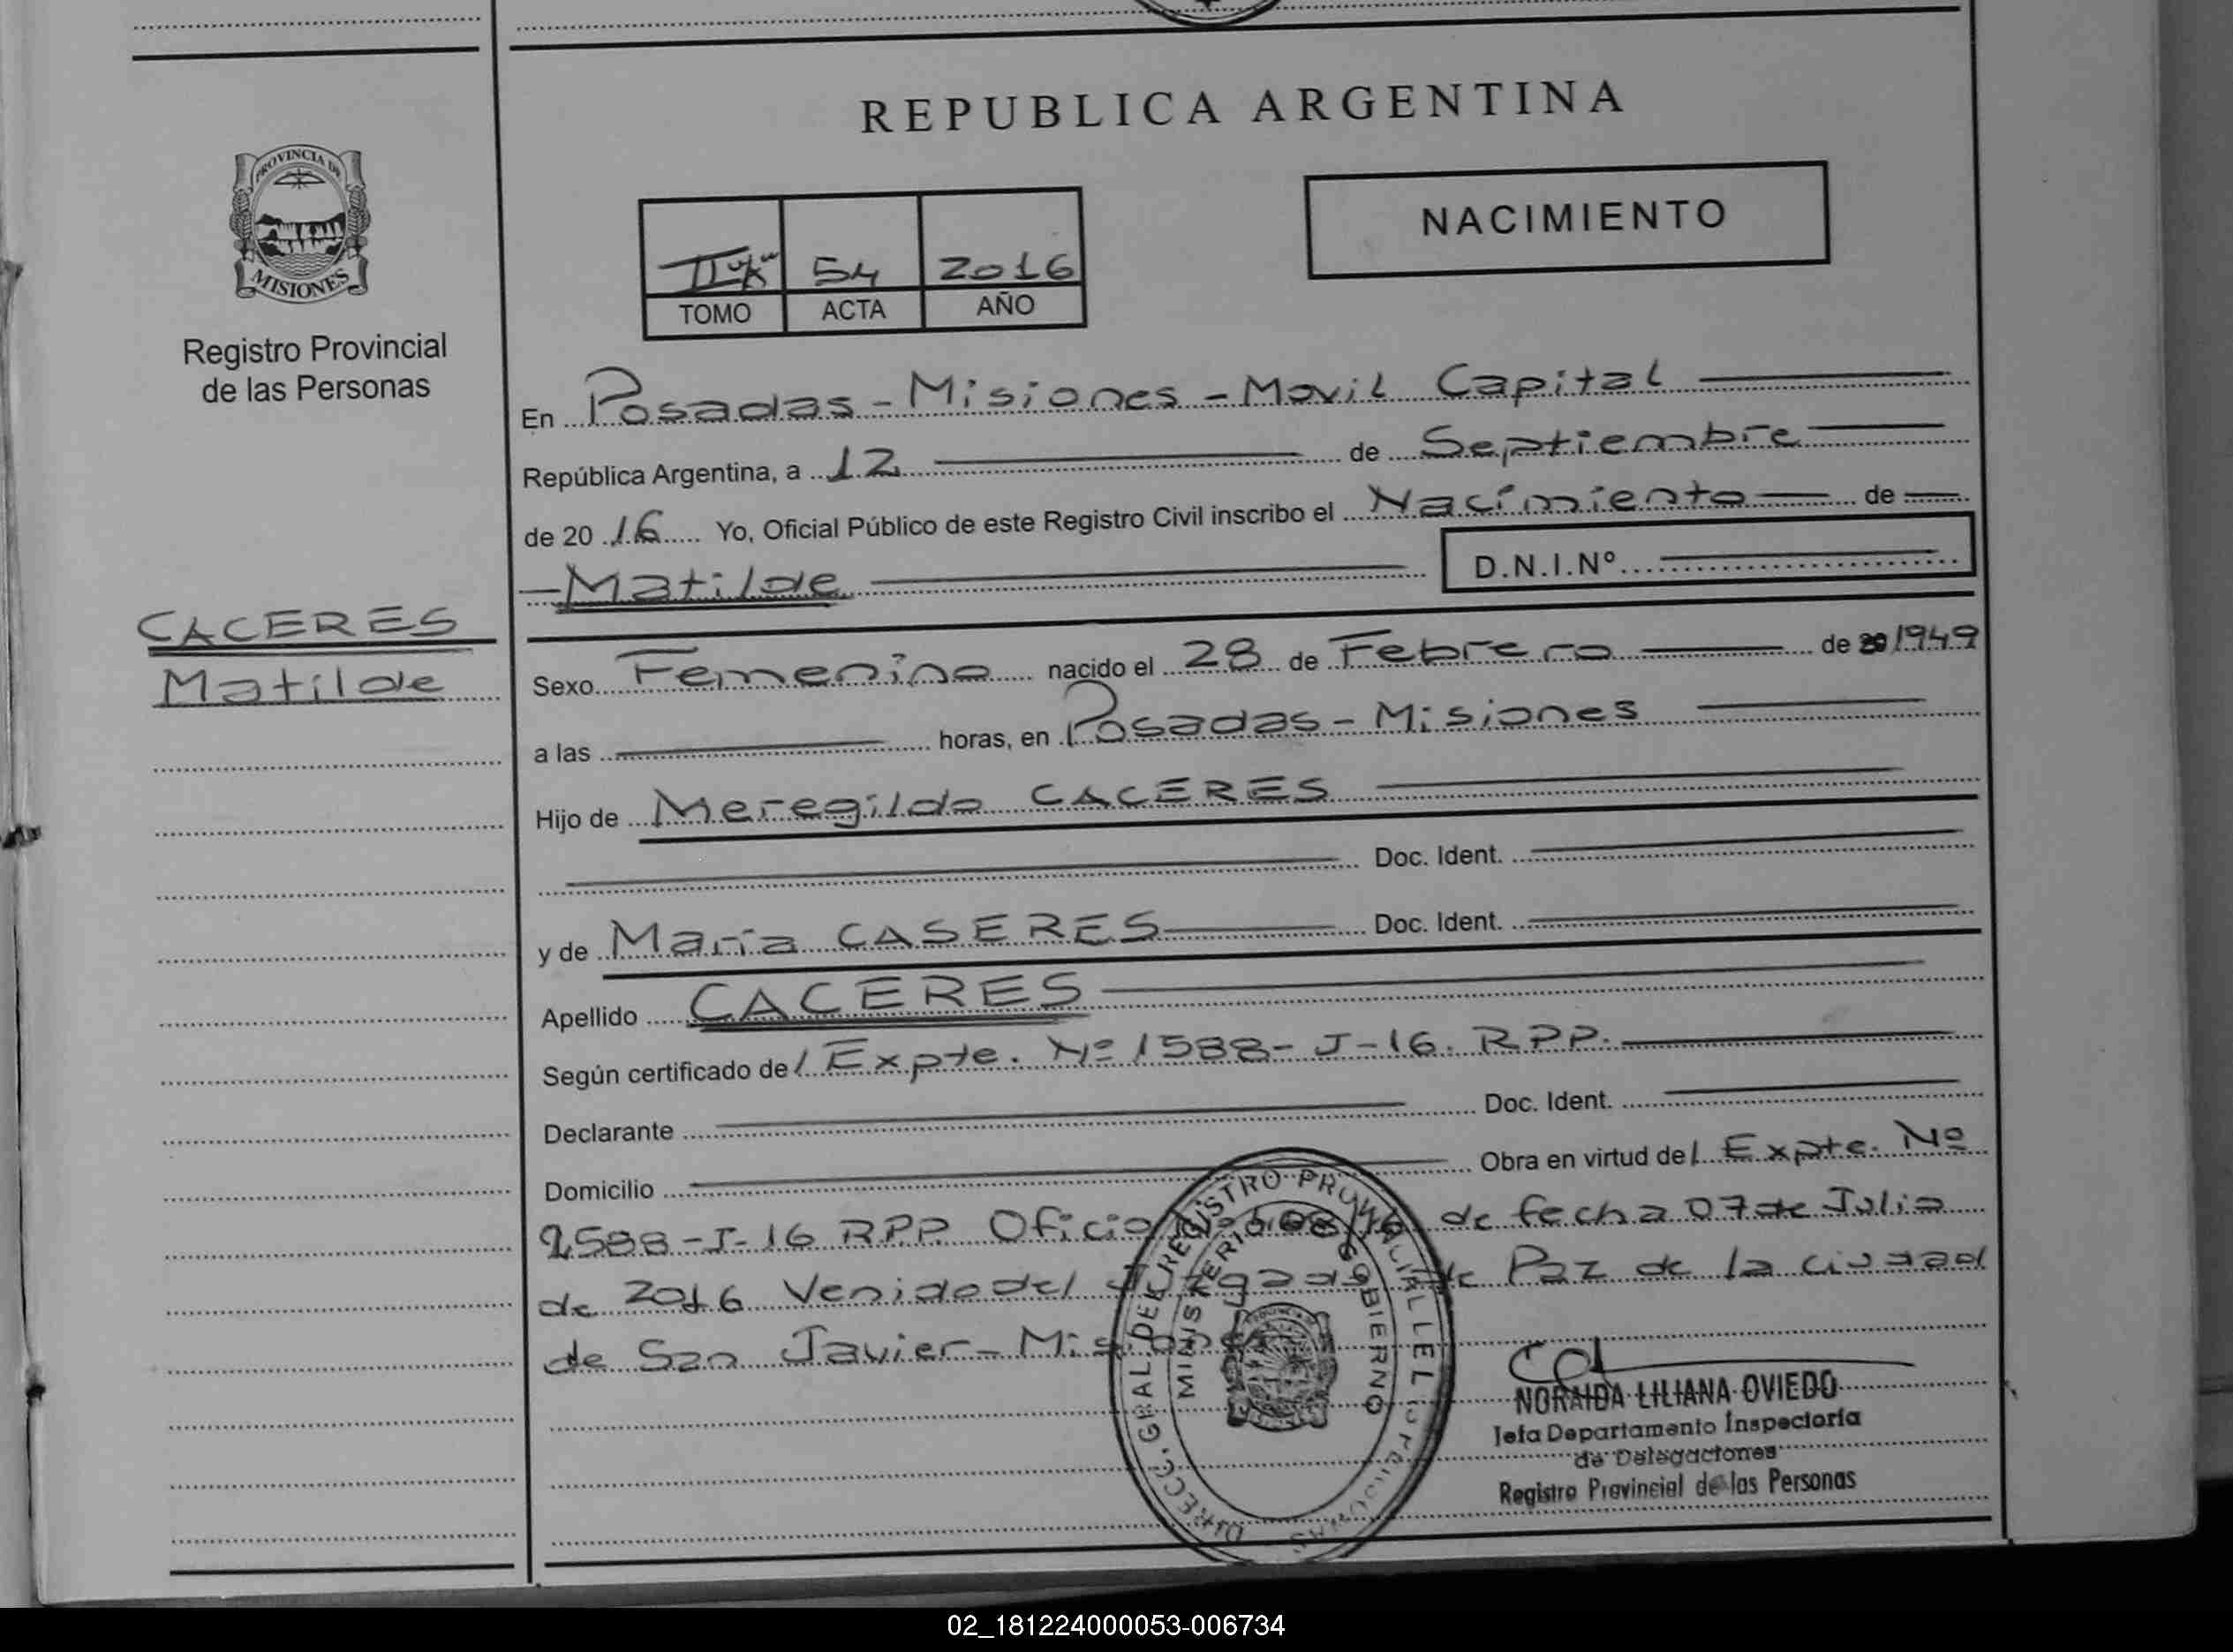 REPUBLICA ARGENTINA
PROVINCIA DE
MISIONES
Registro Provincial
de las Personas
NACIMIENTO
54 2016
TOMO ACTA AÑO
En Posadas - Misiones - Movil Capital
República Argentina, a 12 de Septiembre
de 20 16 Yo, Oficial Público de este Registro Civil inscribo el Nacimiento de
Matilde D.N.I.Nº
CACERES
Matilde
Sexo Femenino nacido el 28 de Febrero de 1949
a las horas, en Posadas - Misiones
Hijo de Meregildo CACERES
Doc. Ident.
y de María CASERES Doc. Ident.
Apellido CACERES
Según certificado del Expte. Nº 1588- J-16. RPP.
Declarante Doc. Ident.
Domicilio Obra en virtud del Expte. Nº
1588-J-16 RPP. Oficio de fecha 07 de Julio
de 2016 Venido del Juzgado de Paz de la ciudad
de San Javier - Misiones
DIRECC. GRAL DEL REGISTRO PROVINCIAL DE LAS PERSONAS
MINISTERIO DE GOBIERNO
NORAIDA LILIANA OVIEDO
Jefa Departamento Inspectoría
de Delegaciones
Registro Provincial de las Personas
02_181224000053-006734